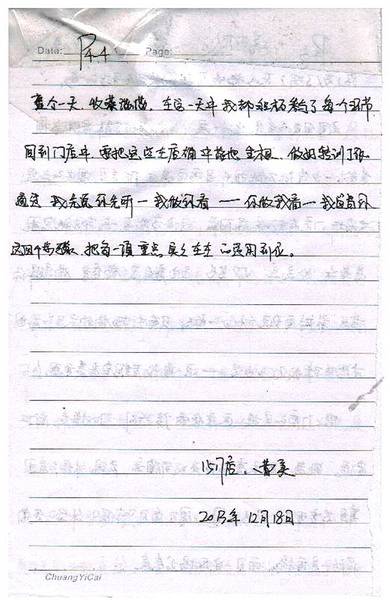 Date: P4-4 Page:
整个一天,收获满满,在这一天中我都积极参与了每个环节
回到门店中,要把这些在店铺中落地生根,做好培训工作
通过 我先说你先听—我做你看——你做我看—我
这四个步骤,把每一项重点真真正正的运用到位。
157店、黄美
2015年12月18日
ChuangYiCai